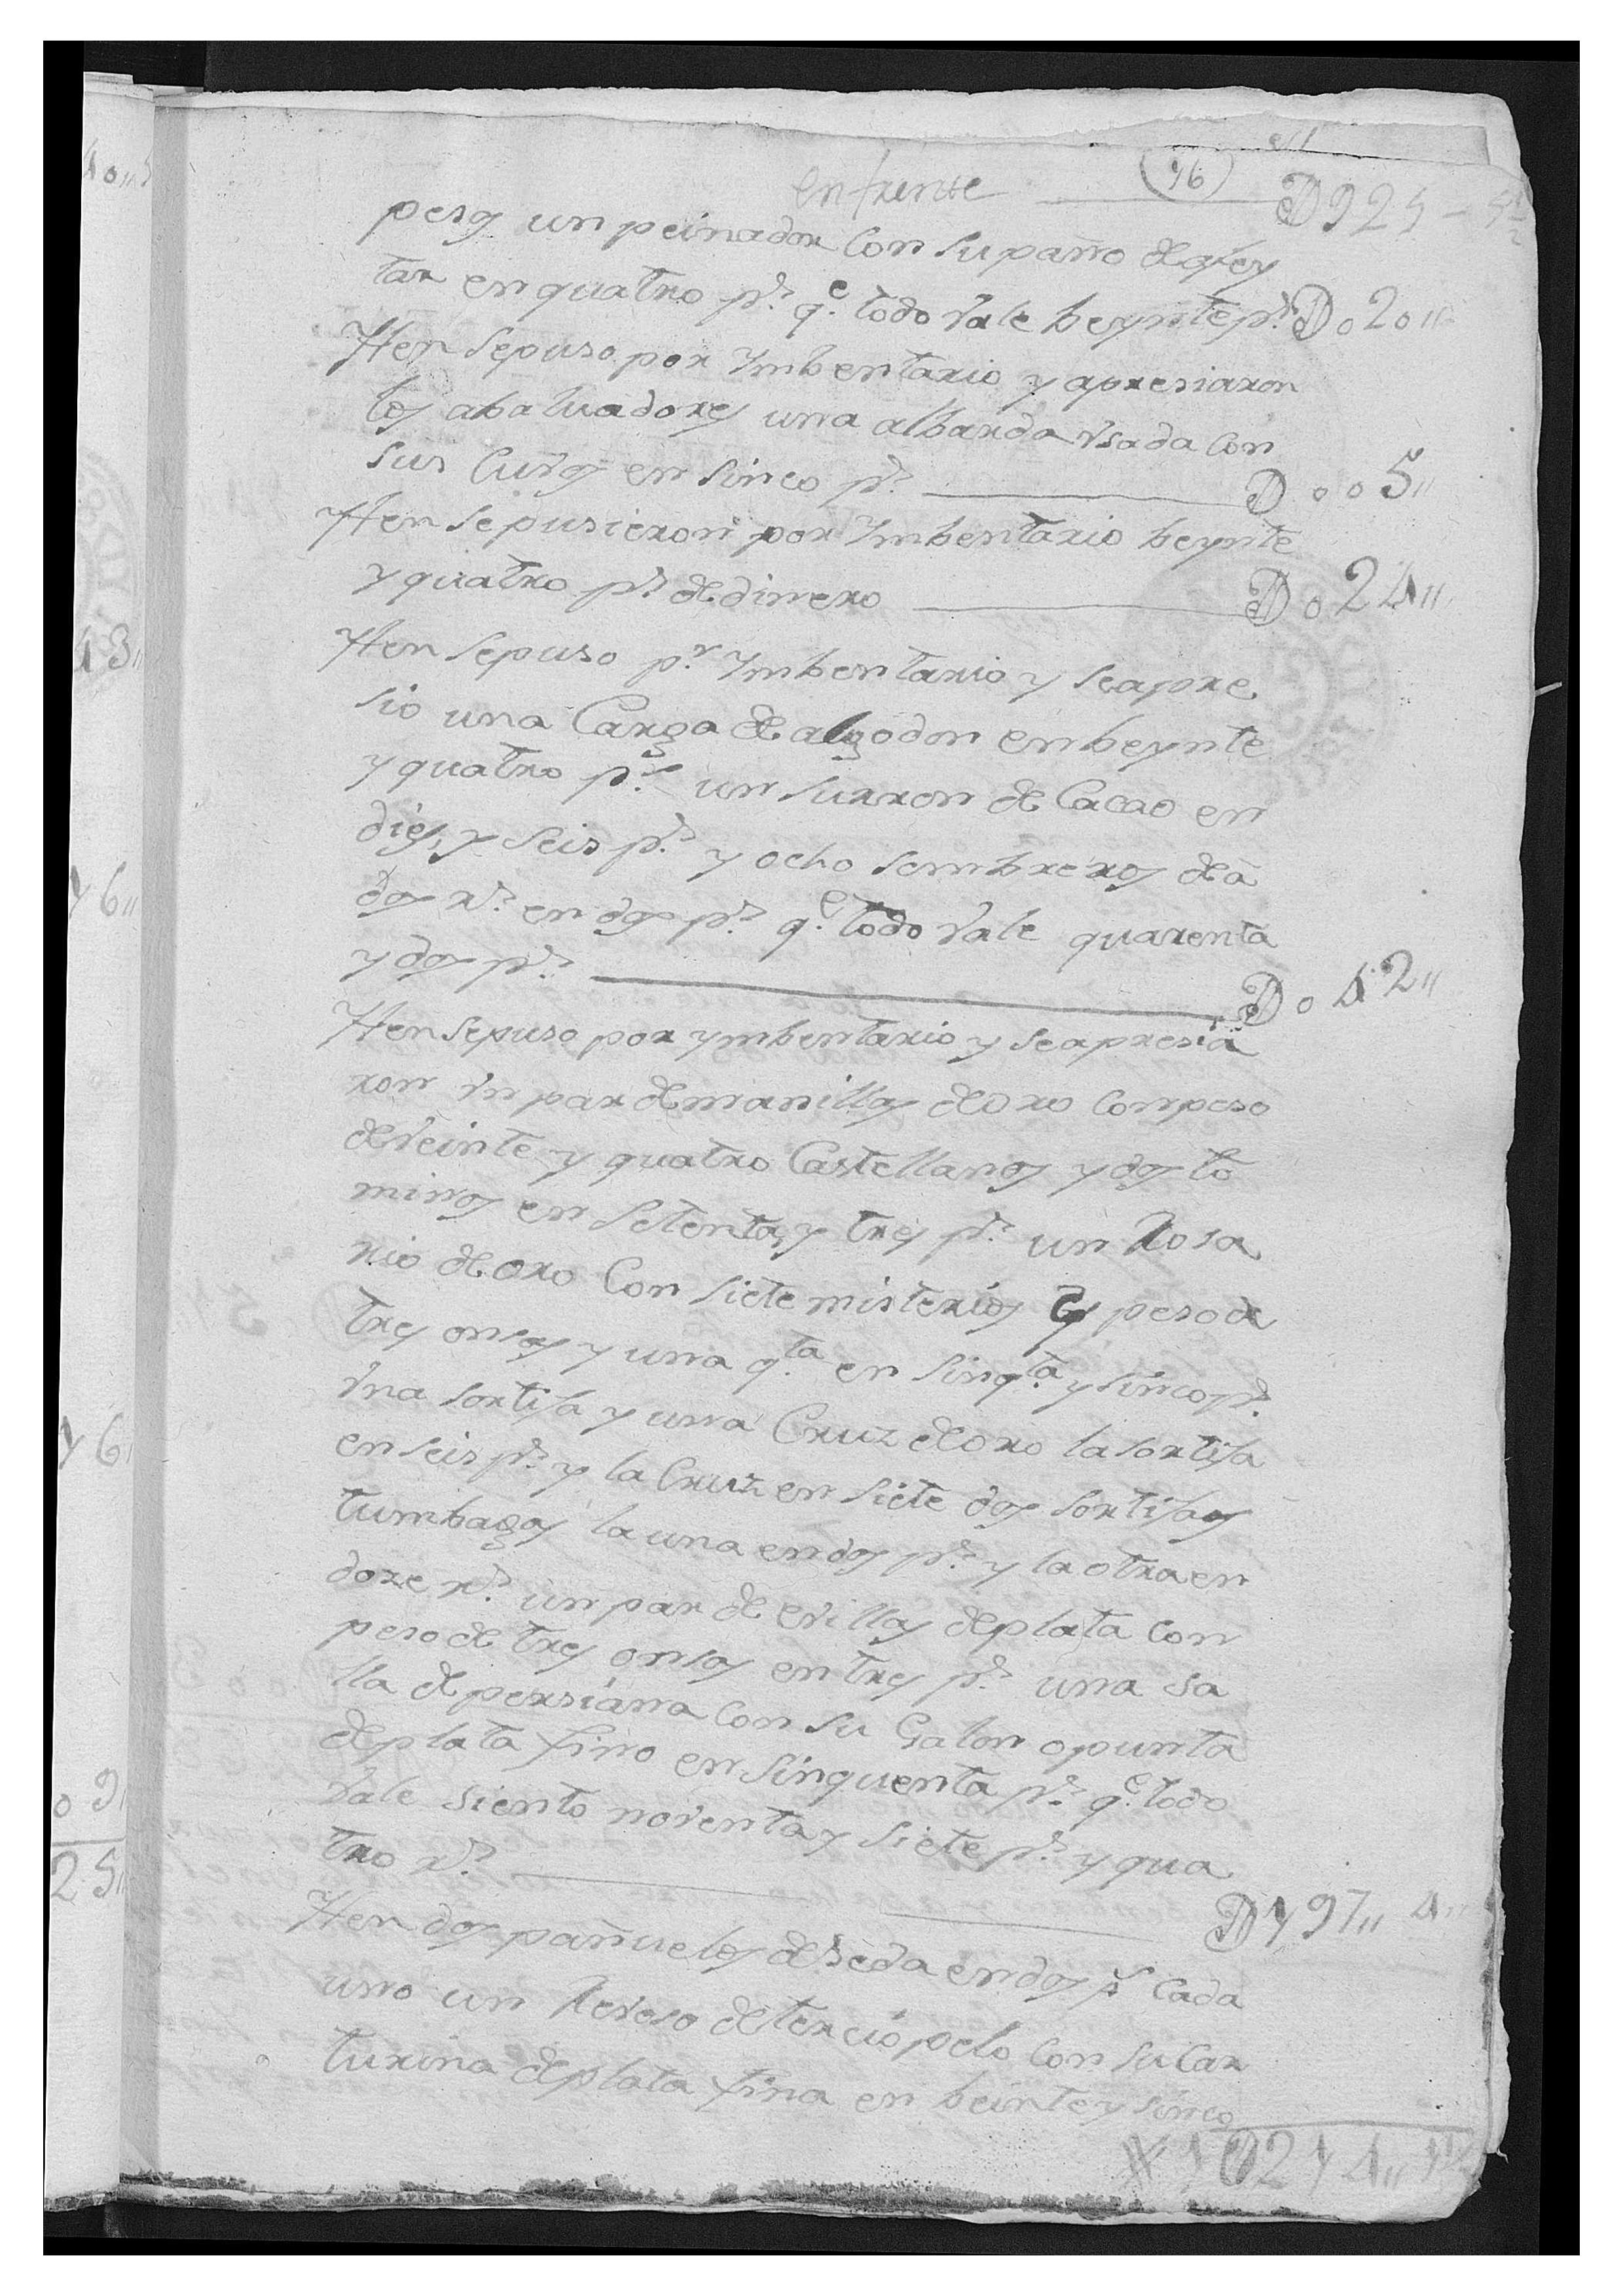 96
enfrente D925 - 5½
pesos un peinador Con su paño de afey
tar en quatro ps. qe. todo Vale beynte ps. D020"
Yten sepuso por Ymbentario y apresiaron
los abaluadores una albarda Vsada Con
sus en sinco ps. D005"
Yten se pusieron por Ymbentario beynte
y quatro ps. de dinero D024"
Yten sepuso pr. Ymbentario y seapre
sio una Carga de algodon en beynte
y quatro ps. un surron de Cacao en
dies, y seis ps. y ocho sombreros de â
dos rs. en dos ps. qe. todo Vale quarenta
y dos ps. D042"
Yten sepuso por ymbentario y seapresiâ
ron Vn par de manillas de oro con peso
de Veinte y quatro Castellanos y dos to
minos en setenta, y tres ps. un Rosa
rio de oro Con siete misterios y peso de
tres onsas y una qta. en sinqta. y sinco ps.
Vna sortija y una Cruz de oro la sortija
en seis ps. y la Cruz en siete dos sortijas
tumbagas la una en dos ps. y la otra en
doze rs. un par de evillas de plata Con
peso de tres onsas en tres ps. una sa
lla de persiana Con su Galon o punta
de plata fino en sinquenta ps. qe. todo
Vale siento noventa y siete ps. y qua
tro rs. D197" 4"
Yten dos pañuelos de seda en dos ps. Cada
uno un Reboso de terciopelo Con su Car
turina de plata fina en beinte y sinco
1D214"